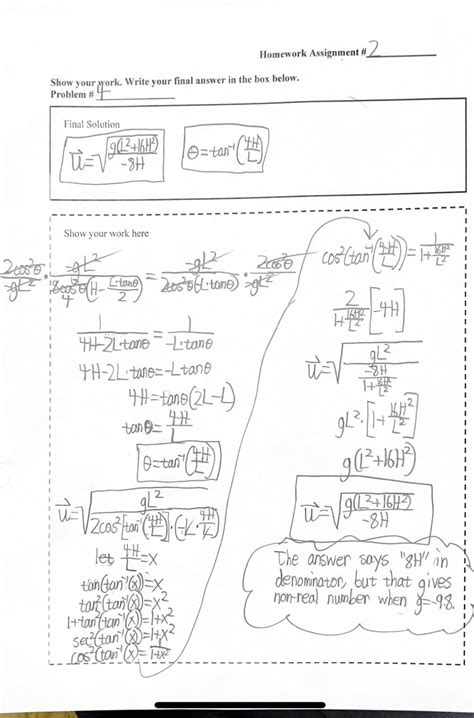 Homework Assignment # 2
Show your work. Write your final answer in the box below.
Problem # 4
Final Solution
u⃗=√(g(L²+16H²)/-8H)
θ=tan⁻¹(4H/L)
Show your work here
2cos²θ/-gL² · -gL²/8cos²θ(H - L·tanθ/2) = -gL²/2cos²θ(L·tanθ) · 2cos²θ/-gL²
4
1/(4H-2L·tanθ) = 1/(-L·tanθ)
4H-2L·tanθ=-L·tanθ
4H=tanθ(2L-L)
tanθ=4H/L
θ=tan⁻¹(4H/L)
u⃗=√(gL²/2cos²[tan⁻¹(4H/L)]·(-L·4H/L))
let 4H/L=x
tan(tan⁻¹(x))=x
tan²(tan⁻¹(x))=x²
1+tan²(tan⁻¹(x))=1+x²
sec²(tan⁻¹(x))=1+x²
cos²(tan⁻¹(x))=1/(1+x²)
cos²(tan⁻¹(4H/L))=1/(1+16H²/L²)
2/(1+16H²/L²)[-4H]
u⃗=√(gL²/(-8H/(1+16H²/L²)))
gL²·[1+16H²/L²]
g(L²+16H²)
u⃗=√(g(L²+16H²)/-8H)
The answer says "8H" in
denominator, but that gives
non-real number when g=-9.8.